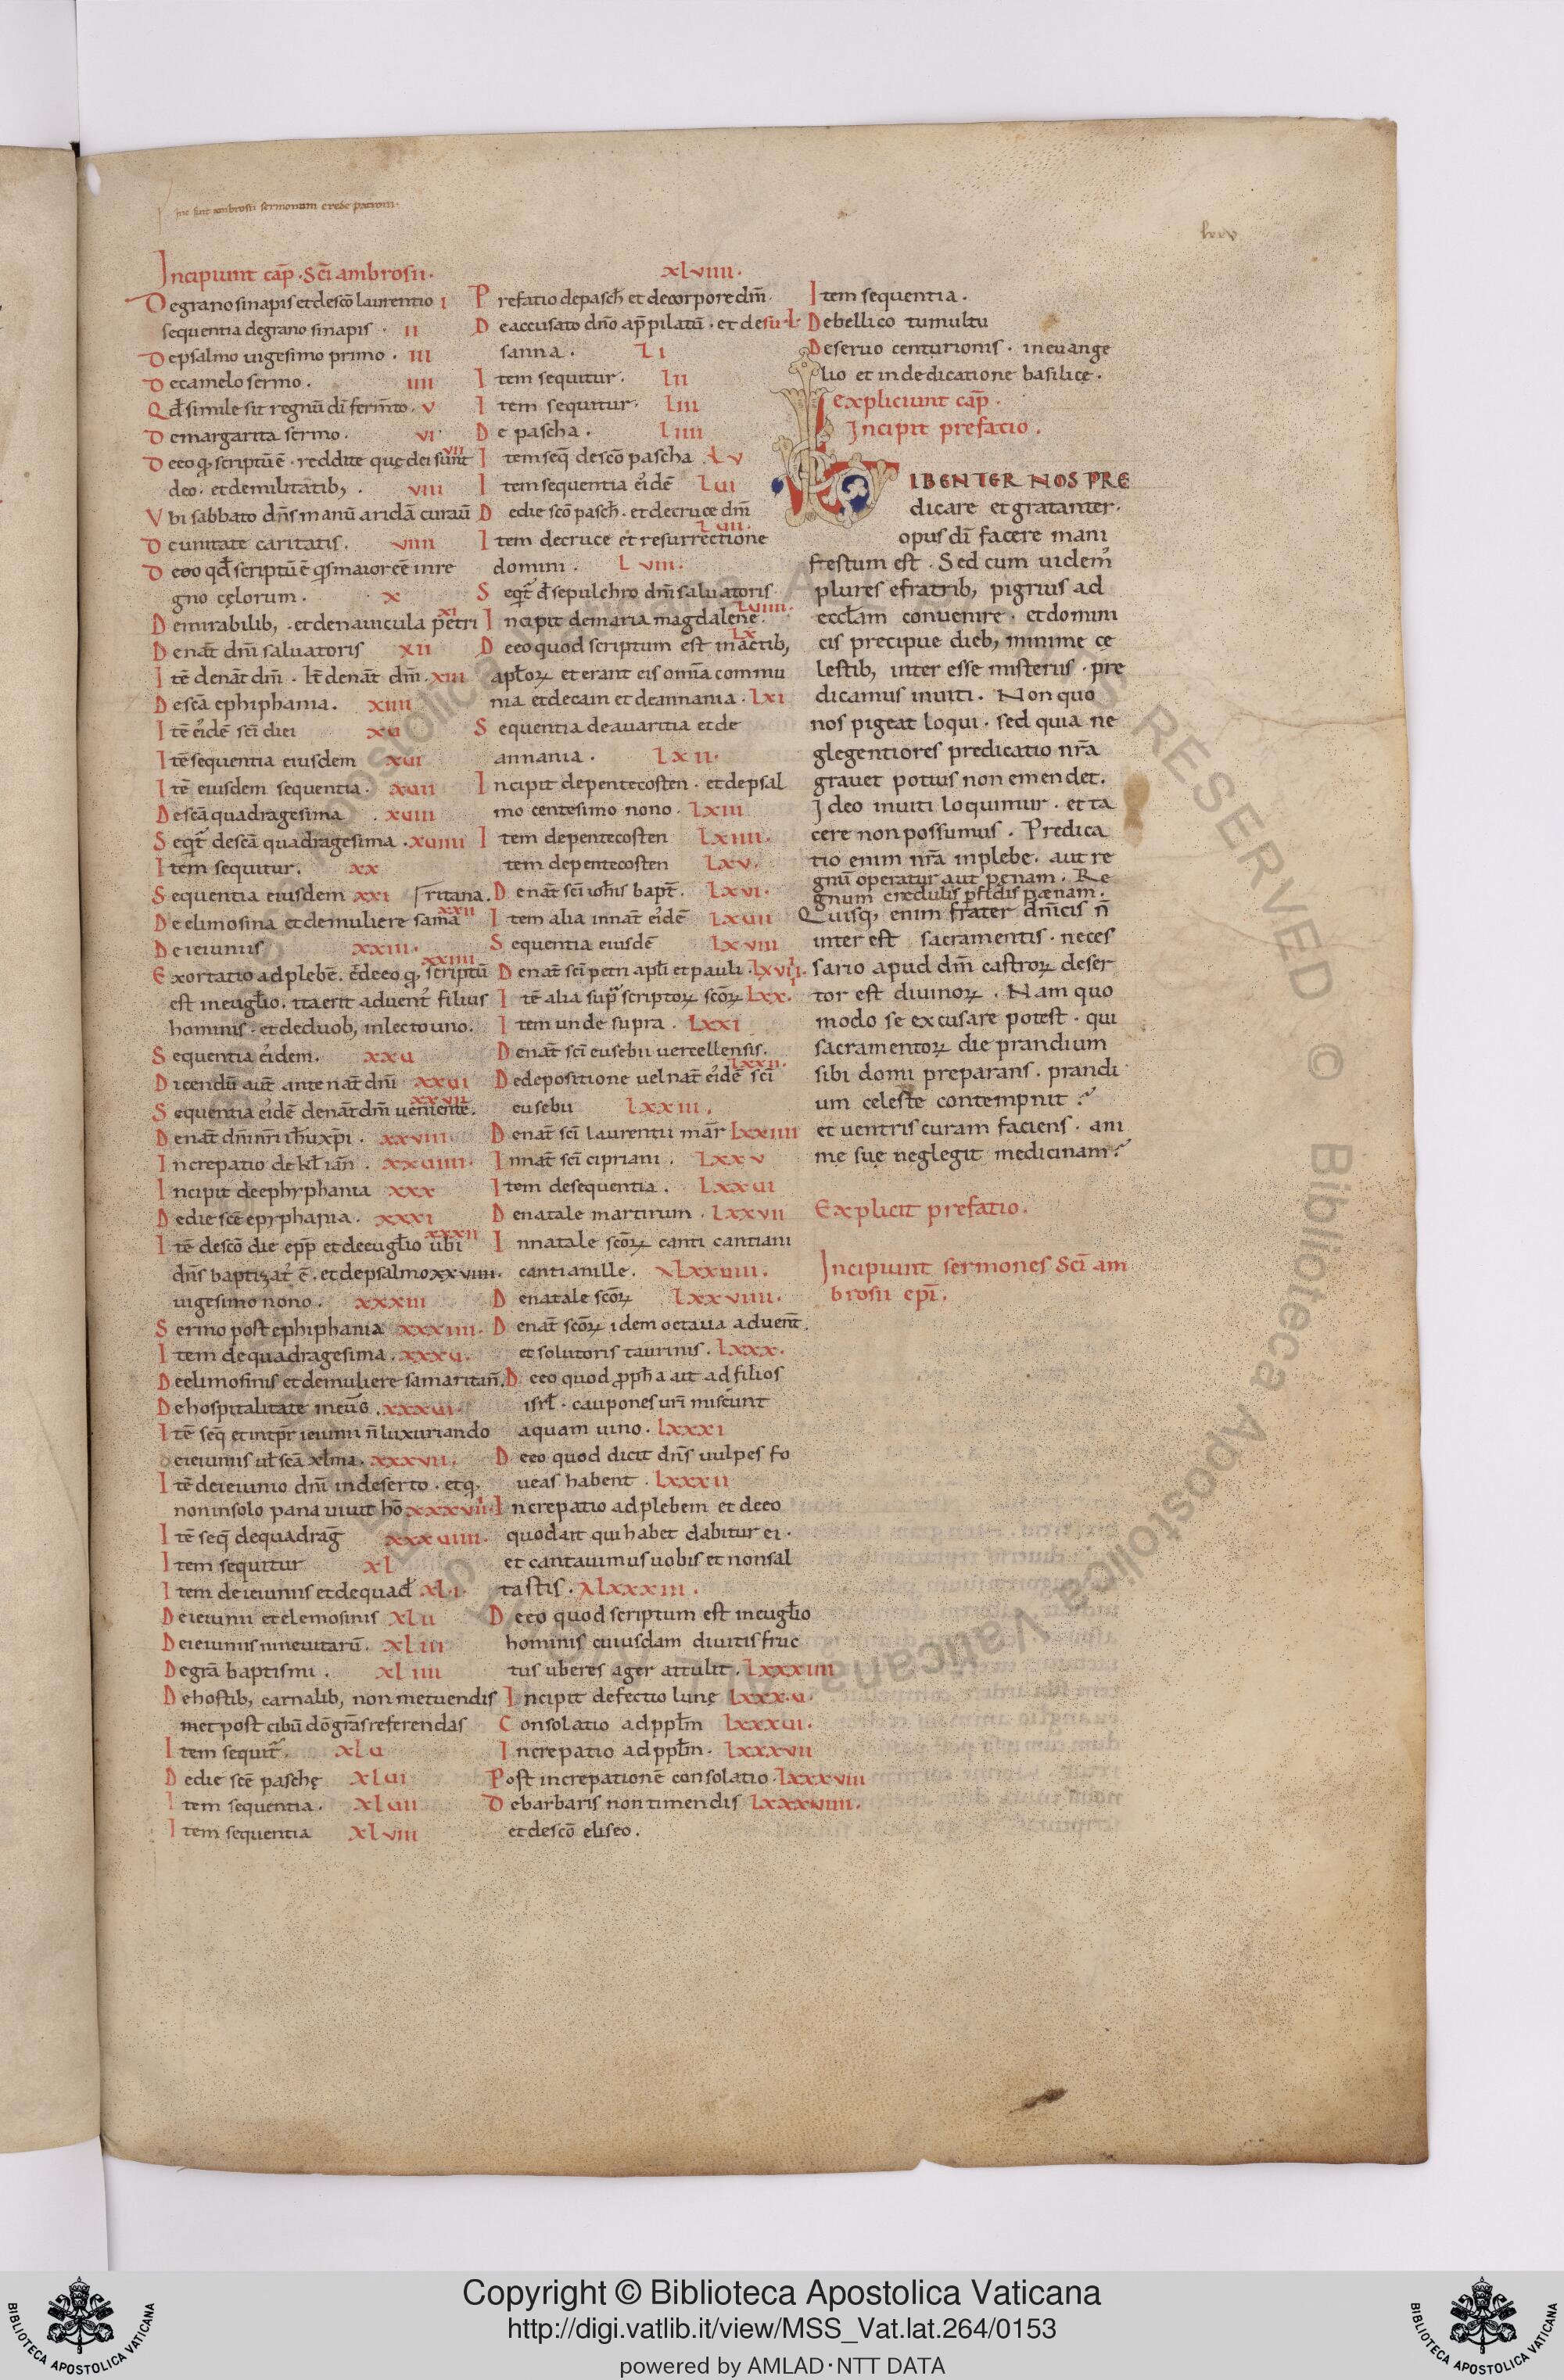 Hic sunt ambrosii sermonum crede patroni·
lxxv
Incipiunt cap̄ · sc̄i ambrosii·
De grano sinapis et de sc̄o laurentio I
sequentia de grano sinapis · II
De psalmo uigesimo primo · III
De camelo sermo . IIII
Qd̄ simile sit regnū dī ferm̄to · V
De margarita sermo . VI
De eo q scriptū ē · reddite quę dei sunt VII
deo · et de militātib; . VIII
Vbi sabbato dn̄s manū aridā curaū
De unitate caritatis . VIIII
De eo qd̄ scriptū ē qs maior ē in re
gno cęlorum . X
De mirabilib; · et de nauicula petri XI
De nat̄ dn̄i saluatoris XII
Itē de nat̄ dn̄i · l̄t de nat̄ dn̄i · XIII
De sc̄a ephiphania . XIIII
Itē eidē sc̄i diei XV
Itē sequentia eiusdem XVI
Itē eiusdem sequentia · XVII
De sc̄a quadragesima . XVIII
Seqt̄ de sc̄a quadragesima . XVIIII
Item sequitur . XX
Sequentia eiusdem XXI
De elimosina et de muliere sama XXII ritana .
De ieiuniis XXIII .
Exortatio ad plebē . et de eo q scriptū XXIIII
est in eugl̄io . ita erit aduent filius
hominis · et de duob; in lecto uno .
Sequentia eidem . XXV
Dicendū aut̄ ante nat̄ dn̄i XXVI
Sequentia eidē de nat̄ dn̄i uenientē . XXVII
De nat̄ dn̄i nr̄i ih̄u xp̄i . XXVIII
Increpatio de kl̄ ian̄ . XXVIIII .
Incipit de ephyphania XXX
De die sc̄e epyphania . XXXI
Itē de sc̄o die epp̄ et de eugl̄io ubi XXXII
dn̄s baptizat ē . et de psalmo XXVIIII .
uigesimo nono . XXXIII
Sermo post ephiphania XXXIIII .
Item de quadragesima . XXXV .
De elimosinis et de muliere samaritan̄ .
De hospitalitate in eūg . XXXVI .
Itē seq̄ et intpr̄ ieiunii n̄ luxuriando
De ieiuniis ul̄ sc̄a xl̄ma . XXXVII .
Itē de ieiunio dn̄i in deserto . et q
non in solo pane uiuit hō XXXVIII .
Itē seq̄ de quadraḡ XXXVIIII .
Item sequitur XL
Item de ieiuniis et de quad̄ XLI .
De ieiunii et elemosinis XLII
De ieiuniis nineuitarū . XLIII
De gr̄a baptismi . XLIIII
De hostib; carnalib; non metuendis
met post cibū dō gr̄as referendas
Item sequit . XLV
De die sc̄e paschę XLVI
Item sequentia . XLVII
Item sequentia XLVIII
XLVIIII .
Prefatio de pasch̄ et de corpore dn̄i .
De accusato dn̄o ap̄ pilatū · et de su L
sanna . LI
Item sequitur . LII
Item sequitur . LIII
De pascha . LIIII
Item seq̄ de sc̄o pascha . LV
Item sequentia eidē LVI
De die sc̄o pasch̄ · et de cruce dn̄i
Item de cruce et resurrectione LVII .
domini . LVIII .
Seqt̄ d̄ sepulchro dn̄i saluatoris
Incipit de maria magdalene . LVIIII .
De eo quod scriptum est in actib; LX
apl̄oꝝ et erant eis om̄ia commu
nia et de cain et de annania · LXI
Sequentia de auaritia et de
annania . LXII .
Incipit de pentecosten · et de psal
mo centesimo nono . LXIII
Item de pentecosten LXIIII .
tem de pentecosten LXV .
De nat̄ sc̄i ioh̄is bapt̄ . LXVI .
Item alia in nat̄ eidē LXVII
Sequentia eiusdē LXVIII
De nat̄ sc̄i petri apl̄i et pauli · LXVIIII .
Itē alia sup scriptoꝝ sc̄oꝝ LXX .
Item unde supra . LXXI
De nat̄ sc̄i eusebii uercellensis .
De depositione uel nat̄ eidē sc̄i LXXII .
eusebii LXXIII .
De nat̄ sc̄i laurentii mar̄ LXXIIII
In nat̄ sc̄i cipriani . LXXV
Item de sequentia . LXXVI
De natale martirum . LXXVII
In natale sc̄oꝝ canti cantiani
cantianille . LXXVIII .
De natale sc̄oꝝ LXXVIIII .
De nat̄ sc̄oꝝ idem octaua aduent̄ .
et solutoris taurinis . LXXX .
De eo quod pph̄a ait ad filios
isrl̄ · caupones uri miscunt
aquam uino . LXXXI
De eo quod dicit dn̄s uulpes fo
ueas habent . LXXXII
Increpatio ad plebem et de eo
quod ait qui habet dabitur ei ·
et cantauimus uobis et non sal
tastis . LXXXIII .
De eo quod scriptum est in eugl̄io
hominis cuiusdam diuitis fruc
tus uberes ager attulit . LXXXIIII
Incipit defectio lunę LXXXV .
Consolatio ad ppl̄m LXXXVI .
Increpatio ad ppl̄m . LXXXVII
Post increpationē consolatio . LXXXVIII
De barbaris non timendis LXXXVIIII .
et de sc̄o eliseo .
Item sequentia .
De bellico tumultu
De seruo centurionis · in euange
lio et in dedicatione basilicę .
Expliciunt cap̄ .
Incipit prefatio .
LIBENTER NOS PRE
dicare et gratanter ·
opus dī facere mani
festum est . Sed cum uidem
plures e fratrib; pigrius ad
eccl̄am conuenire · et domini
cis precipue dieb; minime ce
lestib; inter esse misteriis · pre
dicamus inuiti . Non quo
nos pigeat loqui · sed quia ne
glegentiores predicatio nr̄a
grauet potius non emendet .
Ideo inuiti loquimur · et ta
cere non possumus . Predica
tio enim nr̄a in plebe · aut re
gnū operatur aut pęnam . Re
gnum credulis pfidis pænam .
Quisq; enim frater dn̄icis n̄
inter est sacramentis · neces
sario apud dn̄m castroꝝ deser
tor est diuinoꝝ . Nam quo
modo se excusare potest · qui
sacramentoꝝ die prandium
sibi domi preparans · prandi
um celeste contempnit ?
et uentris curam faciens · ani
mę suę neglegit medicinam ?
Explicit prefatio .
Incipiunt sermones Sc̄i am
brosii epī .
Copyright © Biblioteca Apostolica Vaticana
http://digi.vatlib.it/view/MSS_Vat.lat.264/0153
powered by AMLAD·NTT DATA
BIBLIOTECA APOSTOLICA VATICANA
BIBLIOTECA APOSTOLICA VATICANA